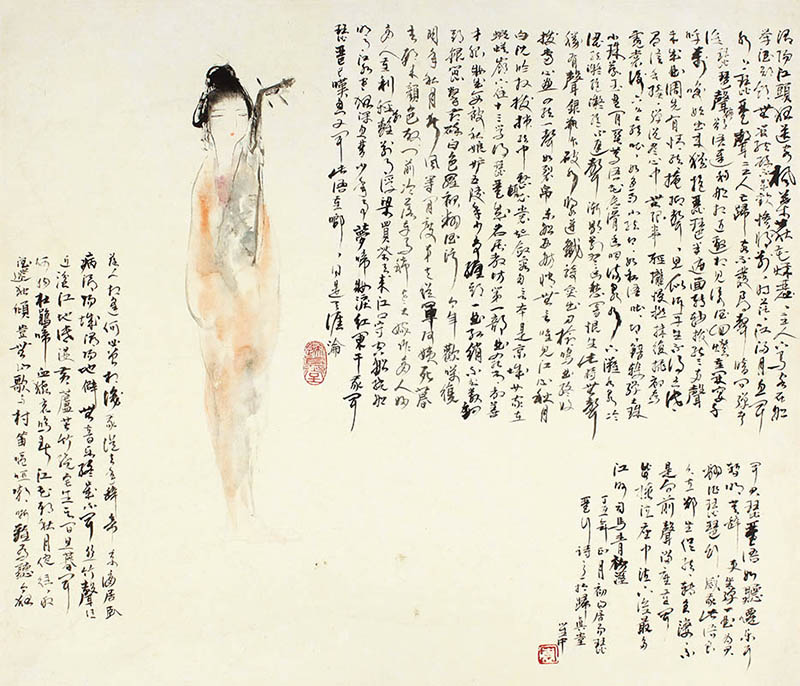 潯陽江頭夜送客楓葉荻花秋瑟瑟主人下馬客在船
舉酒欲飲無管絃醉不成歡慘將別別時茫茫江浸月忽聞
水上琵琶聲主人忘歸客不發尋聲暗問彈者
誰琵琶聲停欲語遲移船相近邀相見添酒回燈重開宴千
呼萬喚始出來猶抱琵琶半遮面轉軸撥絃三兩聲
未成曲調先有情絃絃掩抑聲聲思似訴平生不得志低
眉信手續續彈說盡心中無限事輕攏慢撚抹復挑初為
霓裳後六么大絃嘈嘈如急雨小絃切切如私語嘈嘈切切錯雜彈大珠
小珠落玉盤間關鶯語花底滑幽咽泉流水下灘水泉冷
澀絃凝絕凝絕不通聲漸歇別有幽愁暗恨生此時無聲
勝有聲銀瓶乍破水漿迸鐵騎突出刀槍鳴曲終收
撥當心畫四絃一聲如裂帛東船西舫悄無言唯見江心秋月
白沉吟放撥插絃中整頓衣裳起斂容自言本是京城女家在
蝦蟆陵下住十三學得琵琶成名屬教坊第一部曲罷曾教善
才服妝成每被秋娘妒五陵年少爭纏頭一曲紅綃不知數鈿
頭銀篦擊節碎血色羅裙翻酒污今年歡笑復
明年秋月春風等閒度弟走從軍阿姨死暮
去朝來顏色故門前冷落車馬稀老大嫁作商人婦
商人重利輕別離前月浮梁買茶去去來江口守空船繞船
明月江水寒夜深忽夢少年事夢啼妝淚紅闌干我聞
琵琶已嘆息又聞此語重唧唧同是天涯淪
落人相逢何必曾相識我從去年辭帝京謫居臥
病潯陽城潯陽地僻無音樂終歲不聞絲竹聲住
近湓江地低濕黃蘆苦竹繞宅生其間旦暮聞
何物杜鵑啼血猿哀鳴春江花朝秋月夜往往取
酒還獨傾豈無山歌與村笛嘔啞嘲哳難為聽今夜
聞君琵琶語如聽仙樂耳
暫明莫辭更坐彈一曲為君
翻作琵琶行感我此言良
久立卻坐促絃絃轉急淒淒不
是向前聲滿座重聞
皆掩泣座中泣下誰最多
江州司馬青衫濕
年正月初白居易琵
琶行詩意於歸與堂